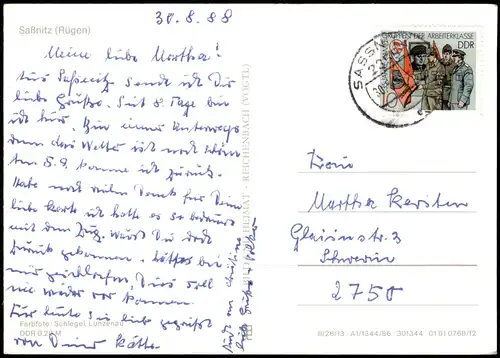 Saßnitz (Rügen)
30.8.88
Meine liebe Martha!
Aus Saßnitz sende ich Dir
liebe Grüße. Seit 8 Tage bin
ich hier. Bin immer Unterwegs
denn das Wetter ist noch schön
5.9. komme ich zurück.
Habe noch vielen Dank für Deine
liebe Karte ich hatte es so
mit dem Zug. Wärst Du doch
zurück gekommen. hättest bei
mir geschlafen, Dies soll
nie wieder vor kommen.
Für heute sei lieb gegrüßt
von Deiner Käthe
liebe Grüße
Farbfoto: Schlegel, Lunzenau
DDR 0,20 M
BILD UND HEIMAT · REICHENBACH (VOGTL)
KAMPFGRUPPEN DER ARBEITERKLASSE
DDR
SASSNITZ
Frau
Martha Kersten
Schwerin
2750
A1/1344/86 301344 01 01 0768/12